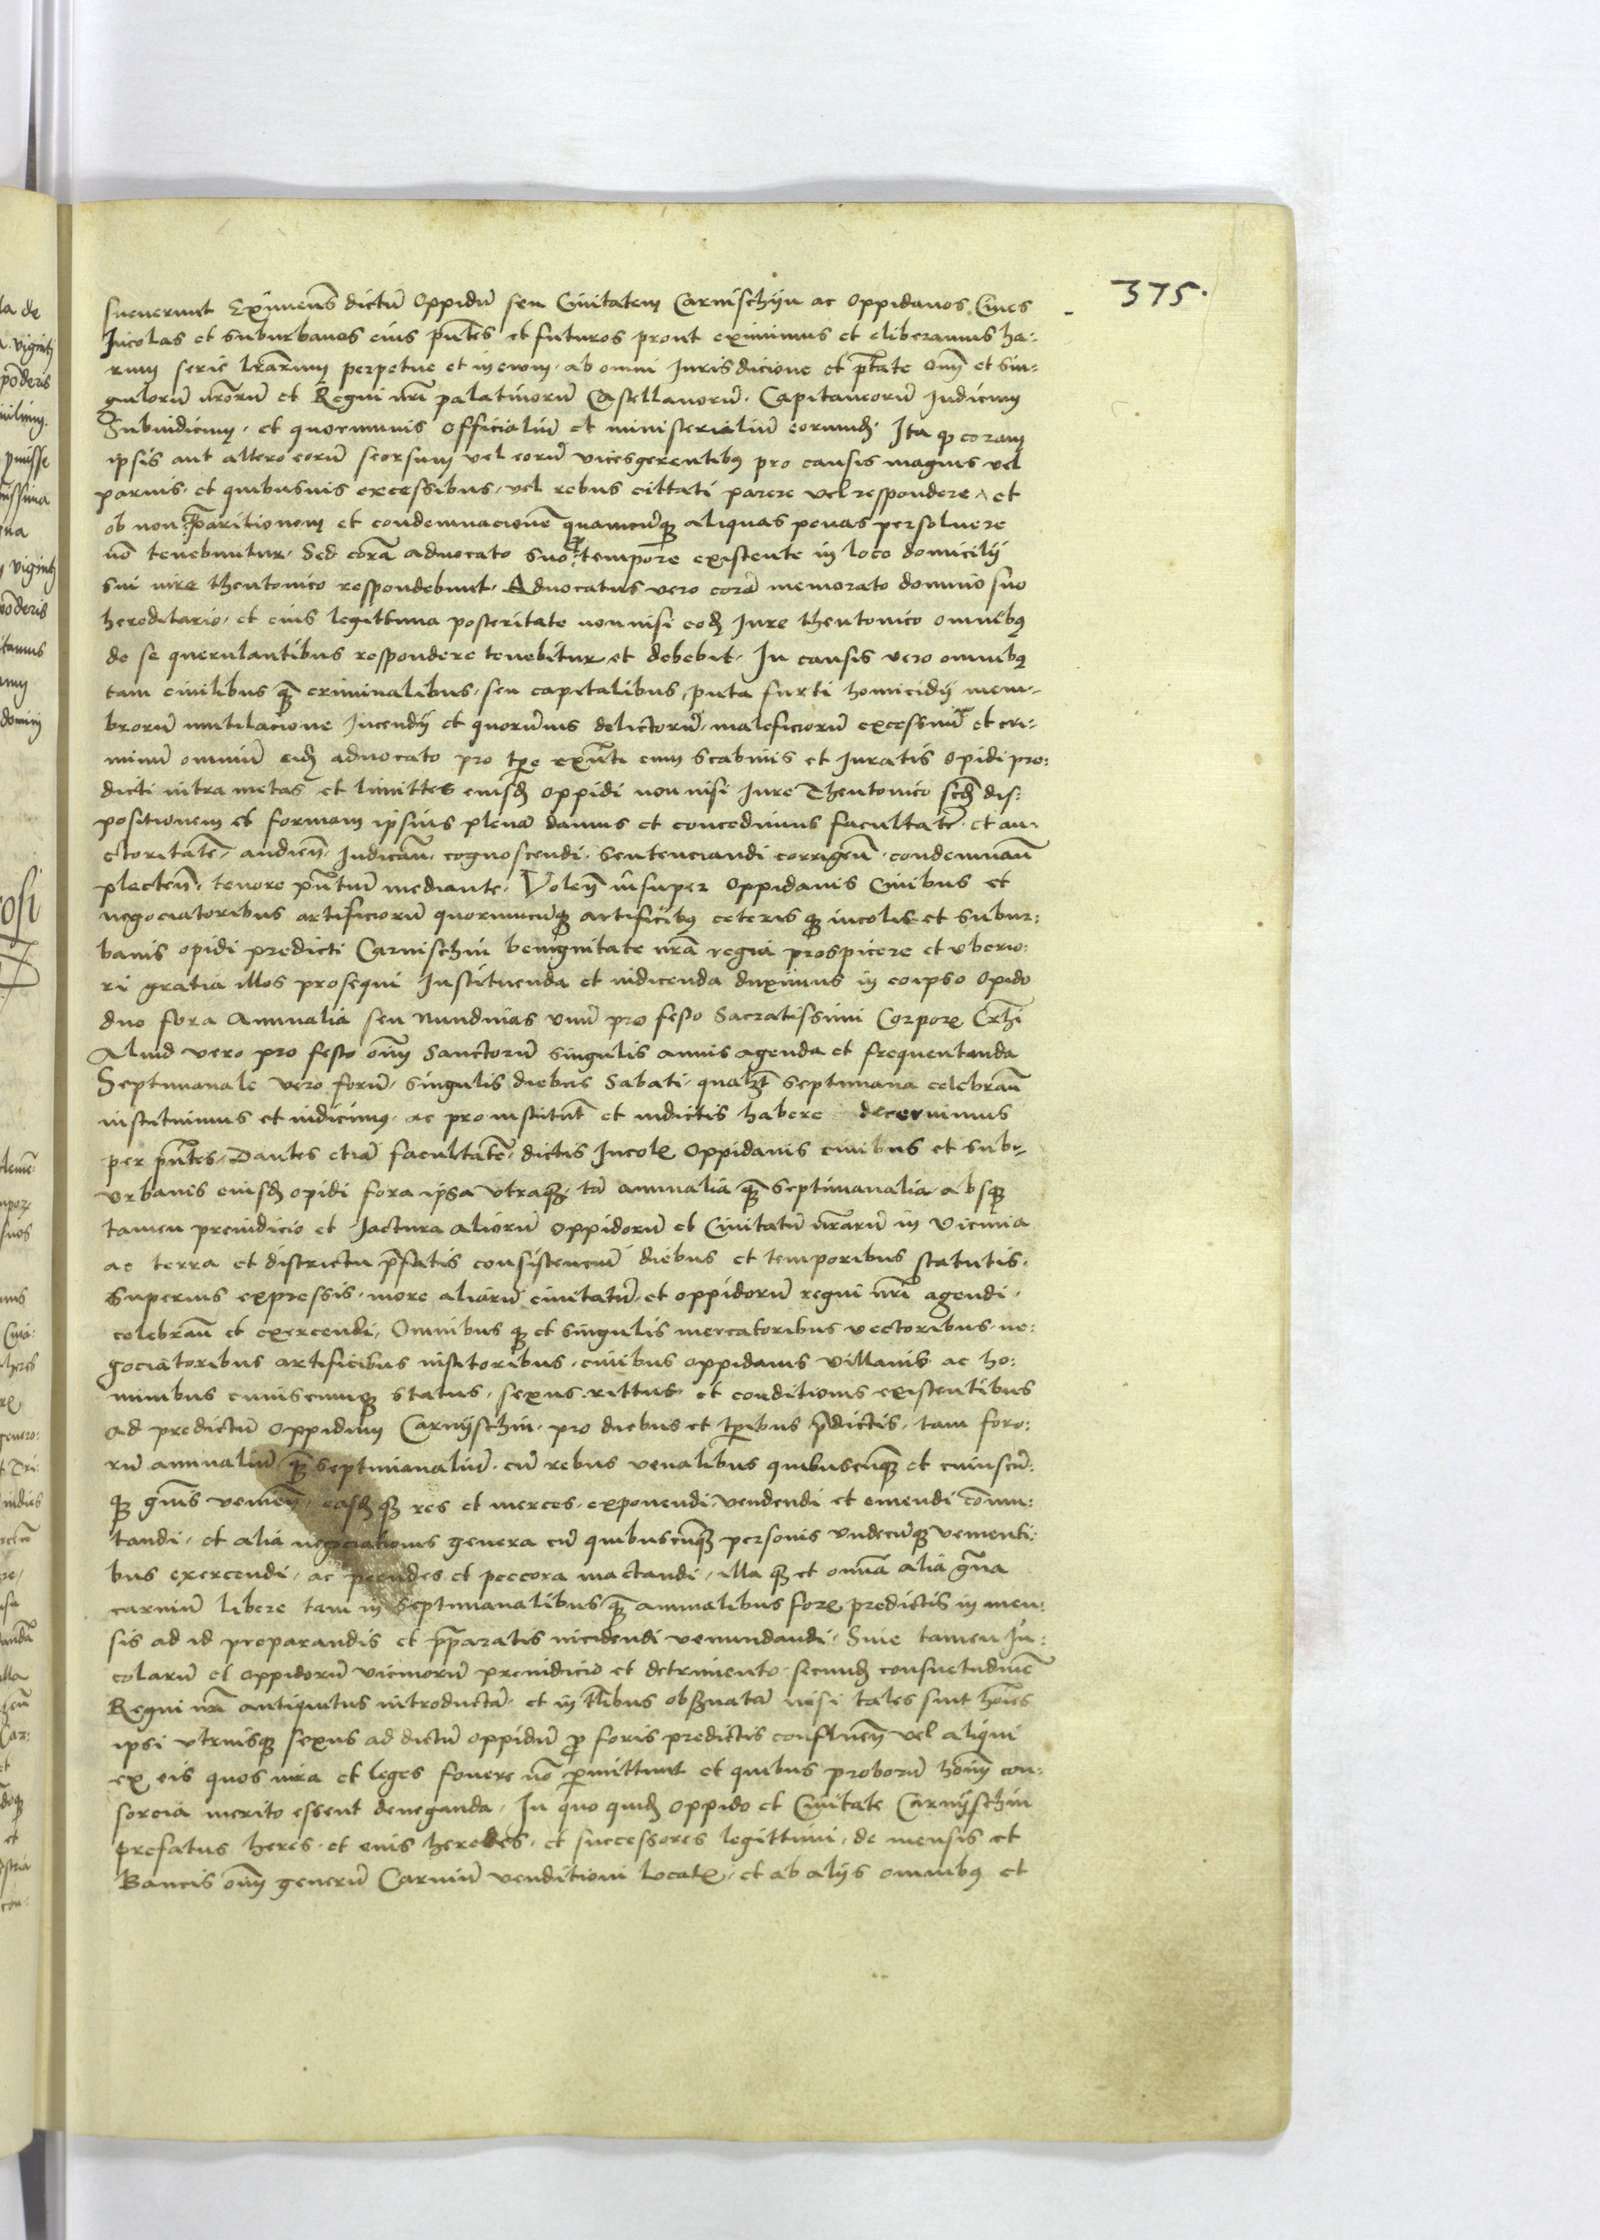 375.
sueverunt Eximens dictū Oppidū seu Civitatem Carnischyn ac Oppidanos Cives
Incolas et suburbanos eius pūtes et futuros prout eximimus et eliberamus ha⸗
rum serie lr̄arum perpetue et in evom, ab omni Jurisdicione et ptāte om̄ et sin⸗
gulorū nr̄orū et Regni nr̄i palatinorū Castellanorū. Capitaneorū Judicum
Subiudicum, et quorumvis officialiū et ministerialiū eorumdē. Ita q coram
ipsis aut altero eorū seorsum vel eorū vicesgerentibus pro causis magnis vel
parvis, et quibusvis excessibus, vel rebus cittati parere vel respondere, et
ob non paritionem et condemnacionē quamcunq aliquas penas persolvere
nō tenebuntur. Sed corā advocato suo pro tempore existente in loco domicilii
sui iure theutonico respondebunt. Advocatus vero corā memorato domino suo
hereditario, et eius legittima posteritate non nisi eod Jure theutonico omnibus
de se querulantibus respondere tenebitur et debebit. In causis vero omnibus
tam civilibus q̄ criminalibus, seu capitalibus, puta furti homicidij mem⸗
brorū mutilacione Incendij et quorūvis delictorū, maleficiorū excessuū et cri⸗
minū omniū eidē advocato pro tp̄e exn̄ti cum scabinis et Juratis Opidi pre⸗
dicti intra metas et limittes eiusdē Oppidi non nisi Jure Theutonico scd̄ dis⸗
positionem et formam ipsius plenā damus et concedimus facultatē, et au⸗
ctoritatē, audien̄, Judicān̄, cognoscendi, sentenciandi corrigen̄, condemnan̄
plecten̄, tenore pn̄tiū mediante. Volen̄ insuper Oppidanis Civibus et
negociatoribus artificiorū quorumcunq artificibus ceteris q incolis et subur⸗
banis opidi predicti Carnischin benignitate nr̄a regia prospicere et uberio⸗
ri gratia illos prosequi Instituenda et indicenda duximus in eoipso Opido
duo fora Annualia seu Nundinas unū pro festo Sacratissimi Corporis Chr̄i
Aliud vero pro festo om̄ Sanctorū singulis annis agenda et frequentanda
Septimanale vero forū, singulis diebus Sabati, qualꝫt septimana celebran̄
instituimus et indicimus, ac pro institut̄ et indictis habere decernimus
per pn̄tes, Dantes etiā facultatē, dictis Incolis Oppidanis civibus et sub⸗
urbanis eiusdē opidi fora ipsa utraq, tā annualia q̄ septimanalia, absq
tamen preiudicio et Jactura aliorū Oppidorū et Civitatū nr̄arū in vicinia
ac terra et districtu p̄fatis consistenciū diebus et temporibus statutis,
superius expressis, more aliarū civitatū, et oppidorū regni nr̄i agendi,
celebran̄ et exercendi, Omnibus q et singulis mercatoribus vectoribus, ne⸗
gociatoribus artificibus institoribus, civibus oppidanis villanis ac ho⸗
minibus cuiuscunq status, sexus rittus et conditionis existentibus
ad predictū Oppidum Carnyschin, pro diebus et tp̄ibus p̄dictis, tam foro⸗
rū annualiū q̄ septimanaliū, cū rebus venalibus quibuscunq et cuiuscū⸗
q gn̄is venien̄, easdē q res et merces, exponendi, vendendi et emendi cōmu⸗
tandi, et alia negociationis genera cū quibuscunq personis undecūq venienti⸗
bus exercendi, ac pecudes et peccora mactandi, illa q et omnīa alia gn̄a
carniū libere tam in septimanalibus q̄ annualibus foris predictis in men⸗
sis ad id preparandis et p̄paratis incidendi venundandi, Sine tamen In⸗
colarū et oppidorū vicinorū preiudicio et detrimento, secundū consuetudinē
Regni nr̄i antiquitus introductā, et in tl̄ibus observatā nisi tales sint hoīes
ipsi utriusq sexus ad dictū oppidū p foris predictis confluen̄ vel aliqui
ex eis quos iura et leges fovere nō p̄mittunt et quibus proborū hoīm con⸗
sorcia merito essent deneganda, In quo quidē Oppido et Civitate Carnyschin
prefatus heres, et eius heredes, et successores legittimi, de mensis et
Bancis om̄ generū Carniū venditioni locatis, et ab aliis omnibus et